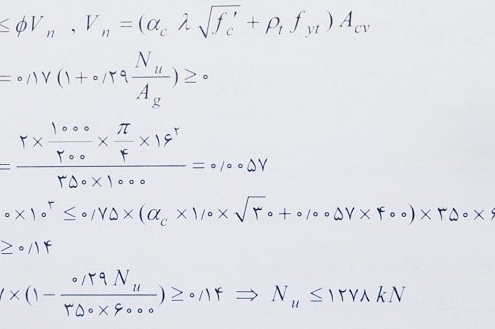 ≤ ϕV_n , V_n = (α_c λ √f_c' + ρ_t f_yt) A_cv
= ۰/۱۷ (۱ + ۰/۲۹ N_u / A_g) ≥ ۰
= (۲ × ۱۰۰۰/۲۰۰ × π/۴ × ۱۶^۲) / (۳۵۰ × ۱۰۰۰) = ۰/۰۰۵۷
۰ × ۱۰^۳ ≤ ۰/۷۵ × (α_c × ۱/۰ × √۳۰ + ۰/۰۰۵۷ × ۴۰۰) × ۳۵۰ × ۶
≥ ۰/۱۴
× (۱ − ۰/۲۹ N_u / (۳۵۰ × ۶۰۰۰)) ≥ ۰/۱۴ ⇒ N_u ≤ ۱۲۷۸ kN